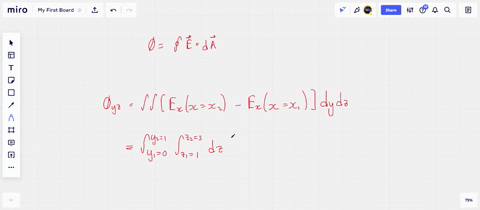 miro My First Board Share
Ø = ∮ E⃗ • dA⃗
Ø_yz = ∬ [ E_x (x = x₂) − E_x (x = x₁) ] dy dz
= ∫_{y₁=0}^{y₂=1} ∫_{z₁=1}^{z₂=3} dz
79%